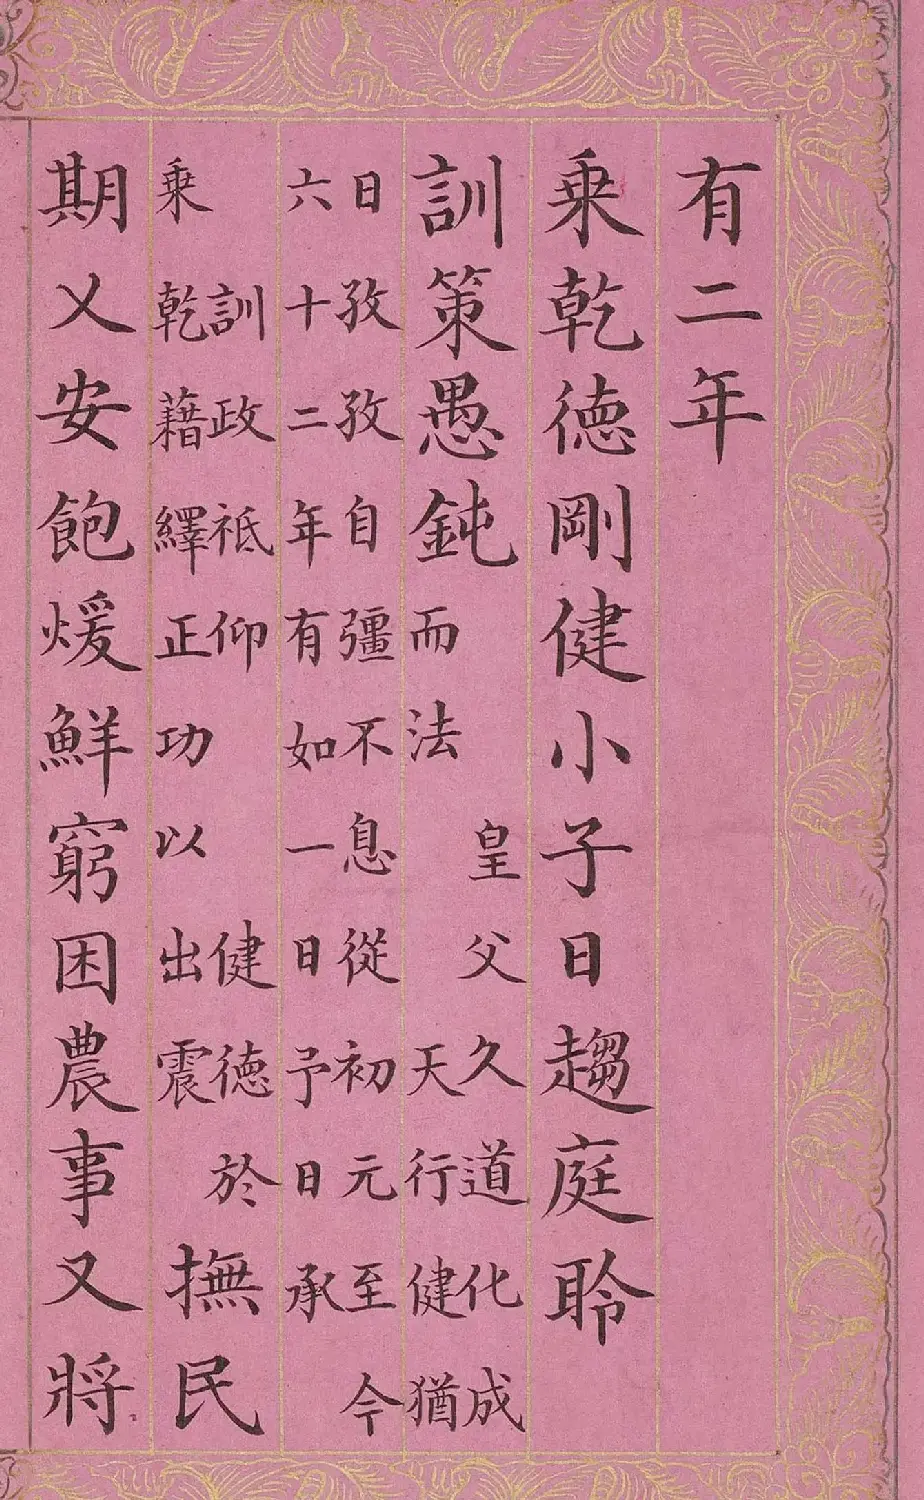 有二年
乗乾徳剛健小子日趨庭聆
訓策愚鈍
皇父久道化成
而法天行健猶
日孜孜自彊不息從初元至今
六十二年有如一日予日承
訓政祗仰健徳於
乗乾藉繹正功以出震
撫民
期乂安飽煖鮮窮困農事又將